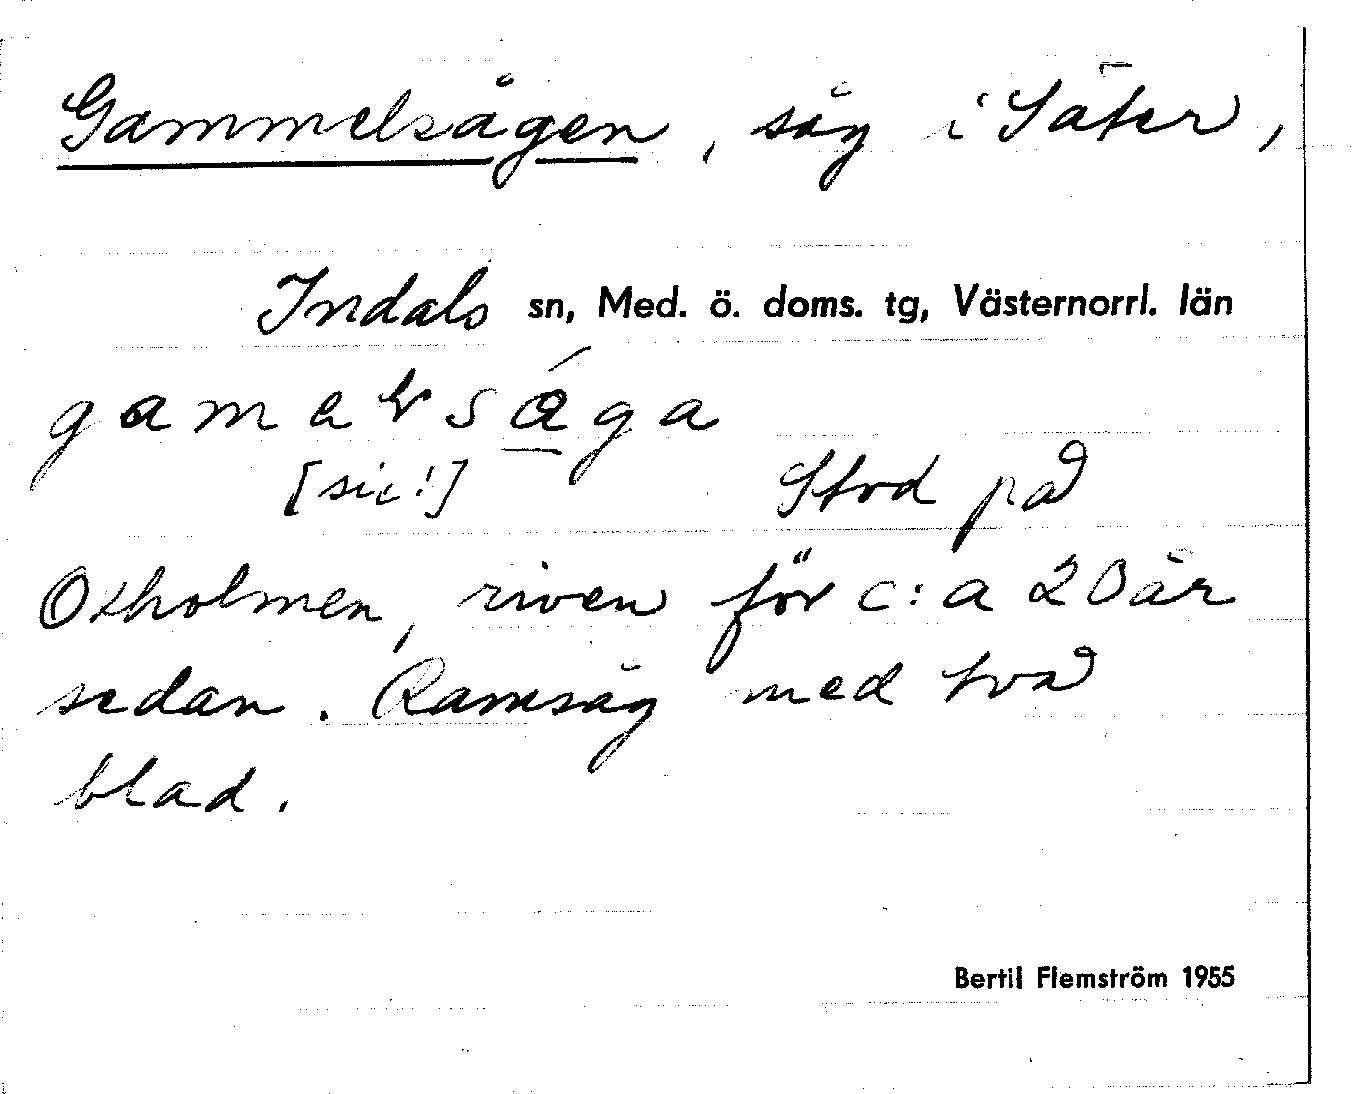 Gammelsågen, såg i Säter,
Indals sn, Med. ö. doms. tg, Västernorrl. län
[sic!] Stod på
Oxholmen, riven för c:a 20 år
sedan. Ramsåg med två
blad.
Bertil Flemström 1955